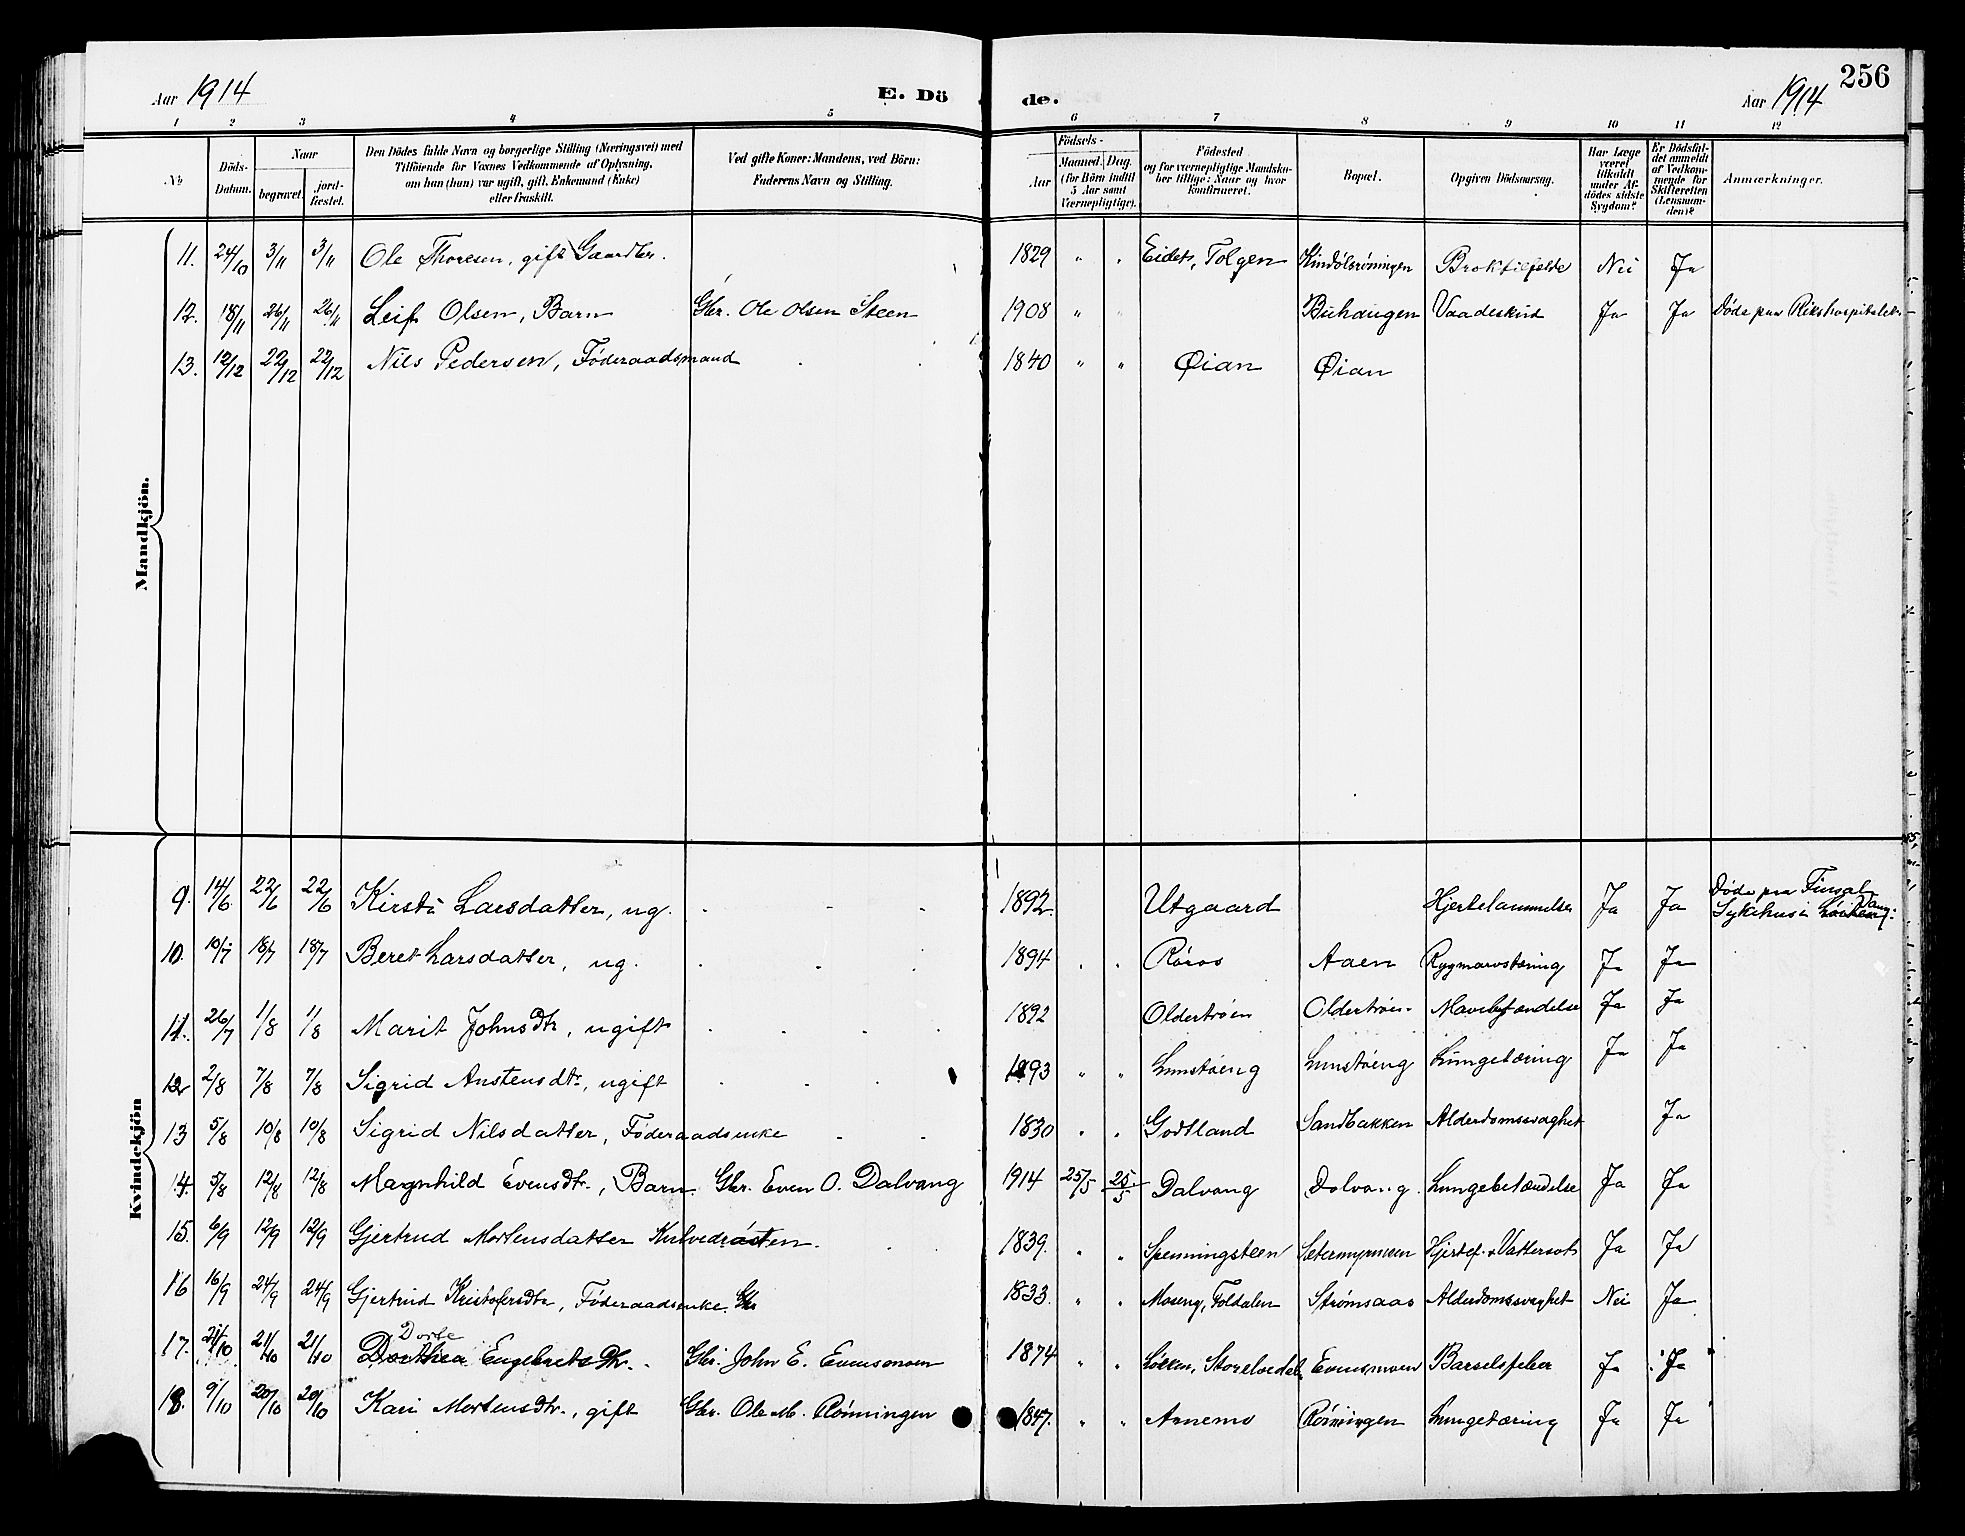 Aar 1914 E. Dö de. Aar 1914 256
1 2 3 4 5 6 7 8 9 10 11 12
№ Döds-Datum. Naar begravet. jord-fæstet. Den Dödes fulde Navn og borgerlige Stilling (Næringsvei) med Tilföiende for Voxnes Vedkommende af Oplysning, om han (hun) var ugift, gift, Enkemand (Enke) eller fraskilt. Ved gifte Koner: Mandens, ved Börn: Faderens Navn og Stilling. Födsels- Aar Maaned. Dag. (for Börn indtil 5 Aar samt Værnepligtige). Födested og for værnepligtige Mandska-ber tillige: Naar og hvor konfirmeret. Bopæl. Opgiven Dödsaarsag. Har Læge været tilkaldt under Af-dödes sidste Sygdom? Er Dödsfal-det anmeldt af Vedkom-mende for Skifteretten (Lensman-den)? Anmærkninger.
Mandkjön.
11. 24/10 3/11 3/11 Ole Thoresen, gift Gaardbr. 1829 " " Eidet, Tolgen Broktilfelde Nei Ja
12. 18/11 26/11 26/11 Leif Olsen, Barn Gbr. Ole Olsen Steen 1908 " " Buhaugen Vaadeskud Ja Ja Døde paa Rikshospitalet
13. 12/12 22/12 22/12 Nils Pedersen, Føderaadsmand 1840 " " Øian Øian
Kvindekjön
9. 14/6 22/6 22/6 Kirsti Larsdatter, ug. 1892. Utgaard Hjertelammelse Ja Ja Døde paa Finsal Sykehus i Vang.
10. 10/7 18/7 18/7 Beret Larsdatter, ug. 1894 " " Røros Aaen Rygmarvstæring Ja Ja
11. 26/7 1/8 1/8 Marit Johnsdtr, ugift 1892 Oldertrøen Oldertrøen Mavebetændelse Ja Ja
12 2/8 7/8 7/8 Sigrid Anstensdtr, ugift 1893 " " Lunstøeng Lunstøeng Lungetæring Ja Ja
13 5/8 10/8 10/8 Sigrid Nilsdatter, Føderaadsenke 1830 " " Godtland Sandbakken Alderdomssvaghet Ja
14. 5/8 12/8 12/8 Magnhild Evensdtr., Barn Gbr. Even O. Dalvang 1914 25/5 25/5 Dalvang Dalvang. Lungebetændelse Ja Ja
15. 6/9 12/9 12/9 Gjertrud Mortensdatter 1839. " " Spenningsteen Sætermyrmoen Hjertef. & Vattersot Ja Ja
16 16/9 24/9 24/9 Gjertrud Kristofersdtr, Føderaadsenke. Gbr 1833. " " Moseng, Foldalen Strømsaas Alderdomssvaghet Nei Ja
Dorte
17. 21/10 21/10 Dorthea Engebretsdtr. Gbr. John E. Evensmoen 1874 " " Løkken, Storelvedal Evensmoen Barselfeber Ja Ja
18. 9/10 20/10 20/10 Kari Mortensdtr., gift Gbr. Ole M. Rønningen 1847. " " Arnemo Rønningen Lungetæring Ja Ja